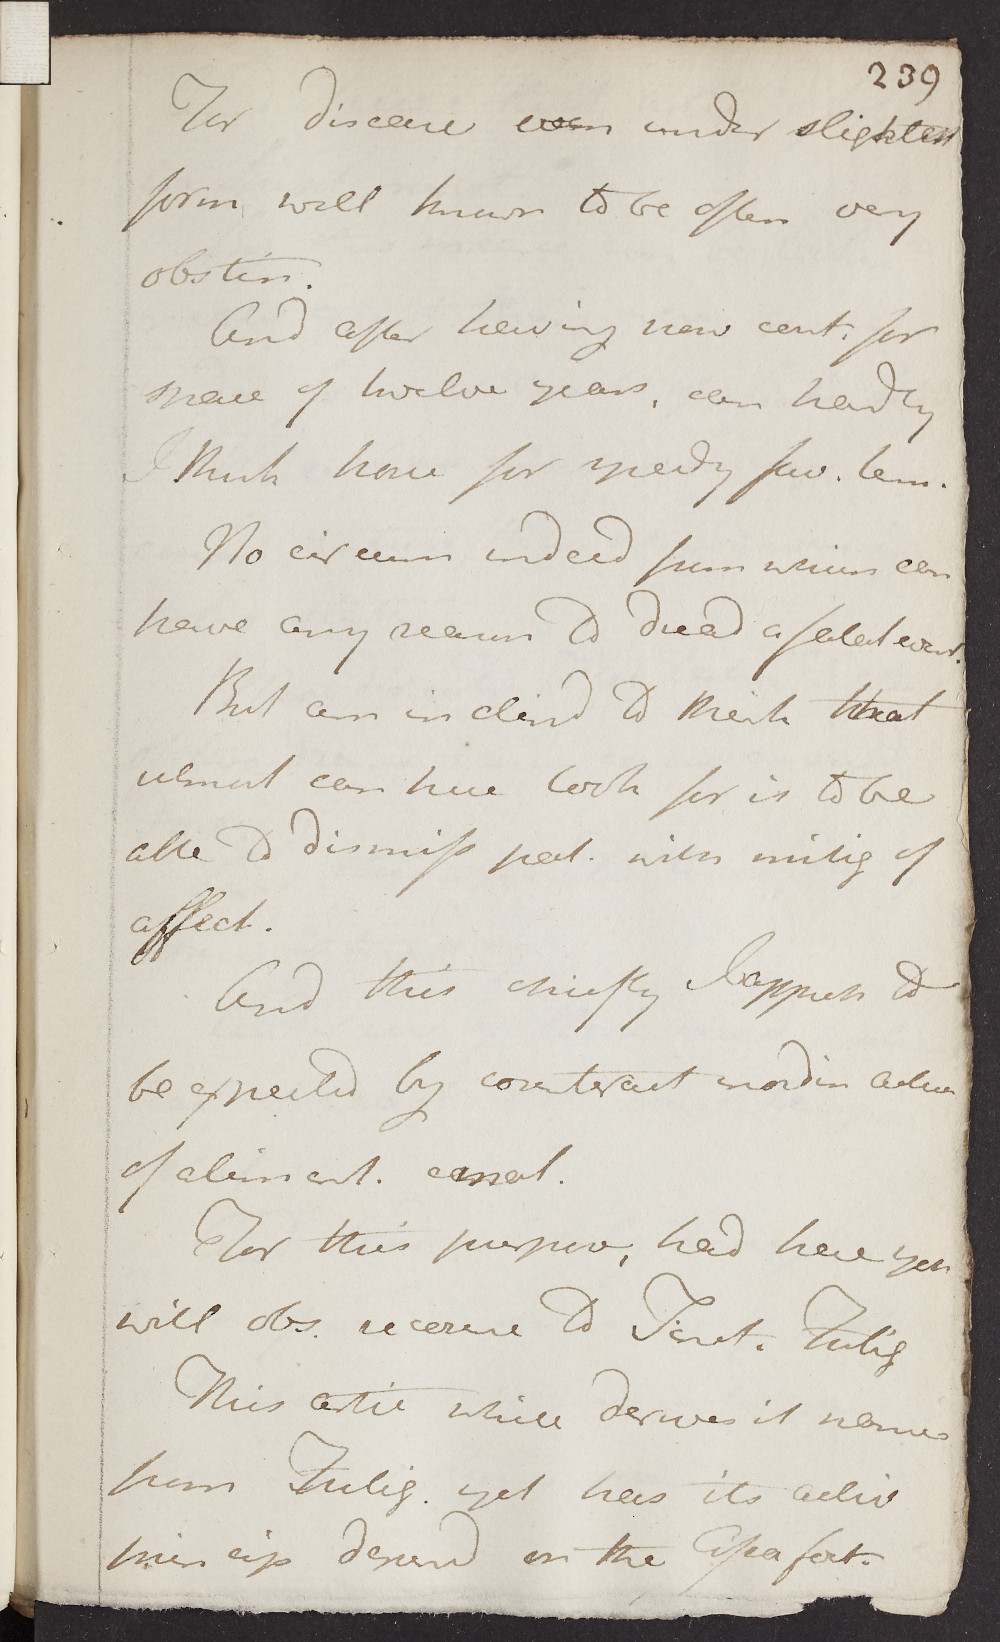 239
For disease even under slightest
form well known to be often very
obstin.
And after having now cont. for
space of twelve years, can hardly
I think hope for speedy fav. term.
No circum indeed from which can
have any reason to dread a fatal event.
But am inclind to think that
utmost can here look for is to be
able to dismiss pat. with mitig of
affect.
And this chiefly I appreh to
be expected by counteract inordin action
of aliment. canal.
For this purpose, had here you
will obs. recourse to Tinct. Fulig
This artic while derives it name
from Fulig. yet has its activ
princip depend on the Assa foet.